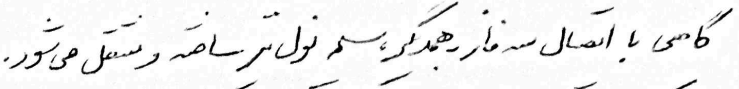 گاهی با اتصال سه فاز بهمدیگر، سیم نول نیز ساخته و منتقل می‌شود.